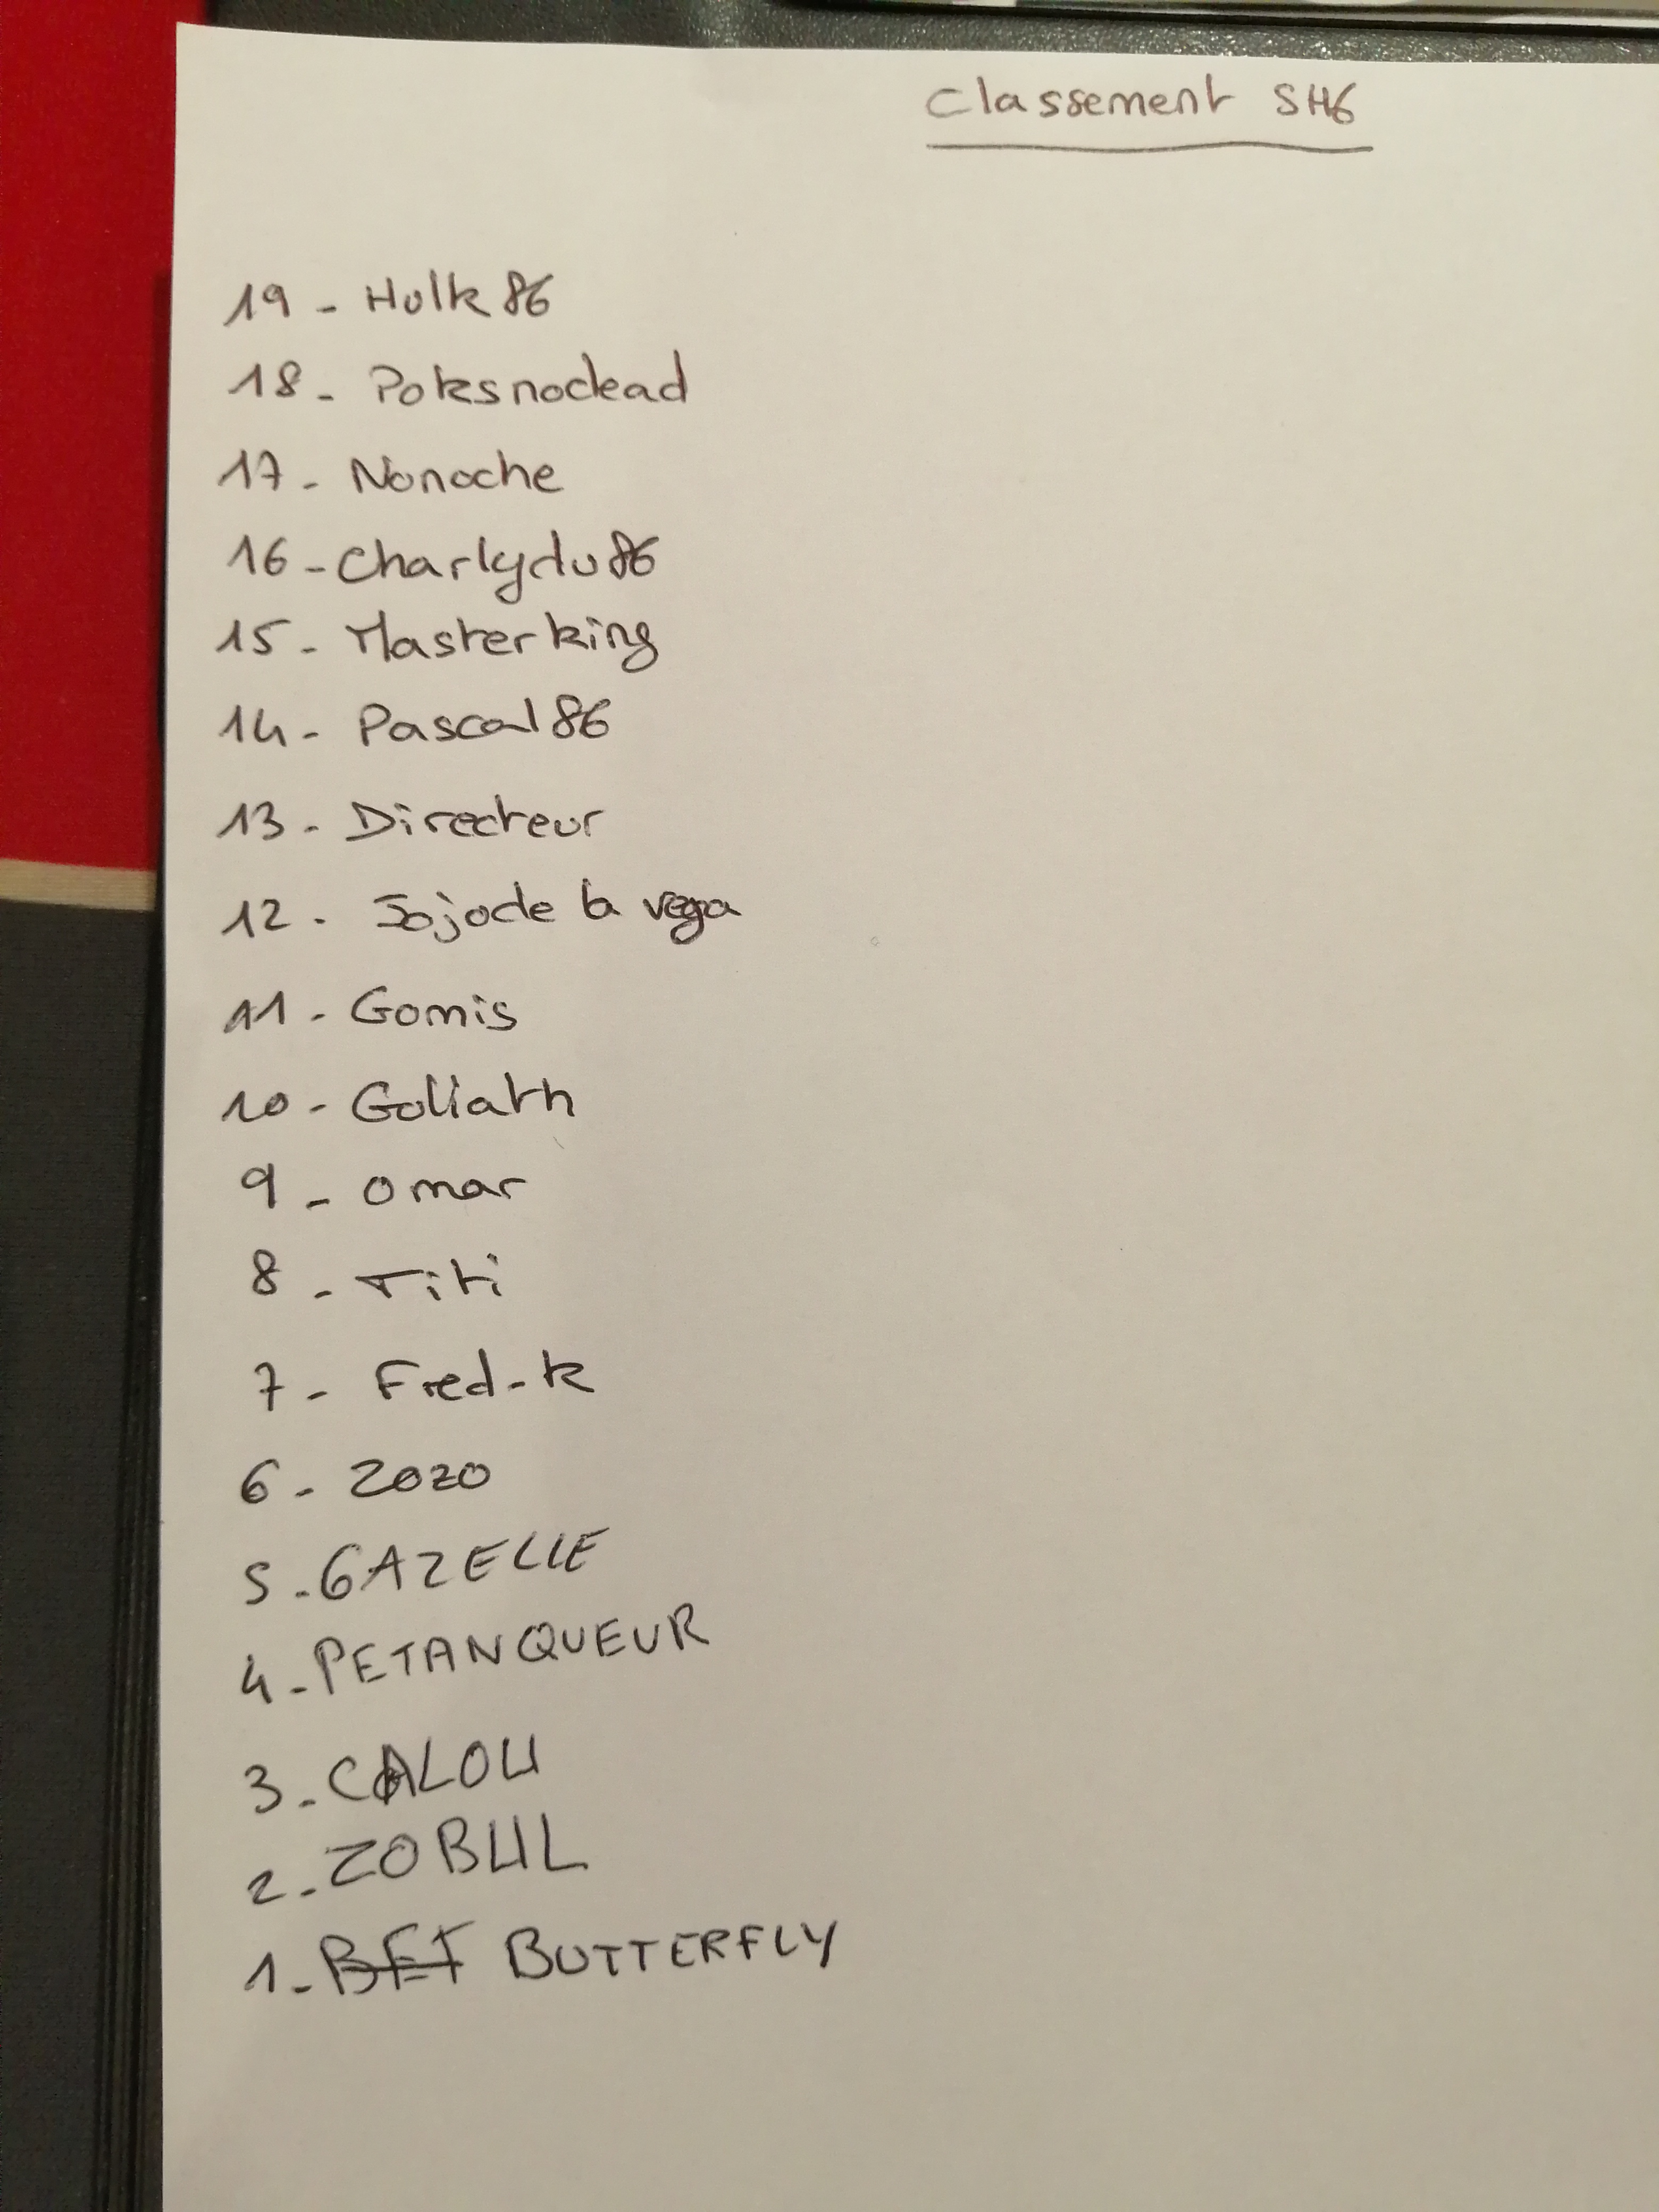 Classement SH6
19 - Hulk86
18 - Poksnodead
17 - Nonoche
16 - Charlydu86
15 - Masterking
14 - Pascal86
13 - Directeur
12 - Jojode la vega
11 - Gomis
10 - Goliath
9 - Omar
8 - Titi
7 - Fred-k
6 - Zozo
5 - GAZELLE
4 - PETANQUEUR
3 - CALOU
2 - ZOBUL
1 - BET BUTTERFLY